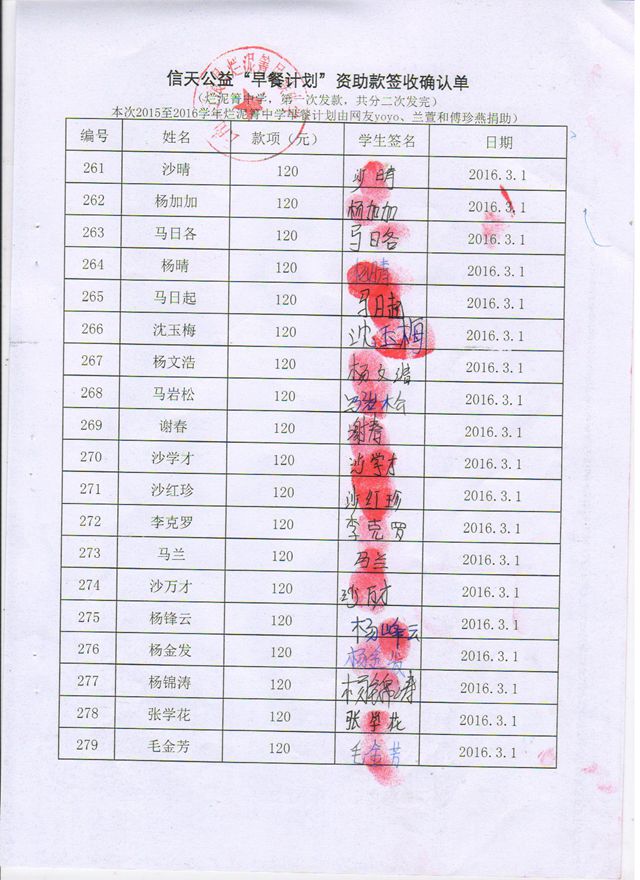 信天公益“早餐计划”资助款签收确认单
(烂泥箐中学，第一次发款，共分二次发完)
本次2015至2016学年烂泥箐中学早餐计划由网友yoyo、兰萱和傅珍燕捐助)
编号 姓名 款项（元） 学生签名 日期
261 沙晴 120 沙晴 2016.3.1
262 杨加加 120 杨加加 2016.3.1
263 马日各 120 马日各 2016.3.1
264 杨晴 120 杨晴 2016.3.1
265 马日起 120 马日起 2016.3.1
266 沈玉梅 120 沈玉梅 2016.3.1
267 杨文浩 120 杨文浩 2016.3.1
268 马岩松 120 2016.3.1
269 谢春 120 谢春 2016.3.1
270 沙学才 120 沙学才 2016.3.1
271 沙红珍 120 沙红珍 2016.3.1
272 李克罗 120 李克罗 2016.3.1
273 马兰 120 马兰 2016.3.1
274 沙万才 120 沙万才 2016.3.1
275 杨锋云 120 杨峰云 2016.3.1
276 杨金发 120 杨金发 2016.3.1
277 杨锦涛 120 杨锦涛 2016.3.1
278 张学花 120 张学花 2016.3.1
279 毛金芳 120 毛金芳 2016.3.1